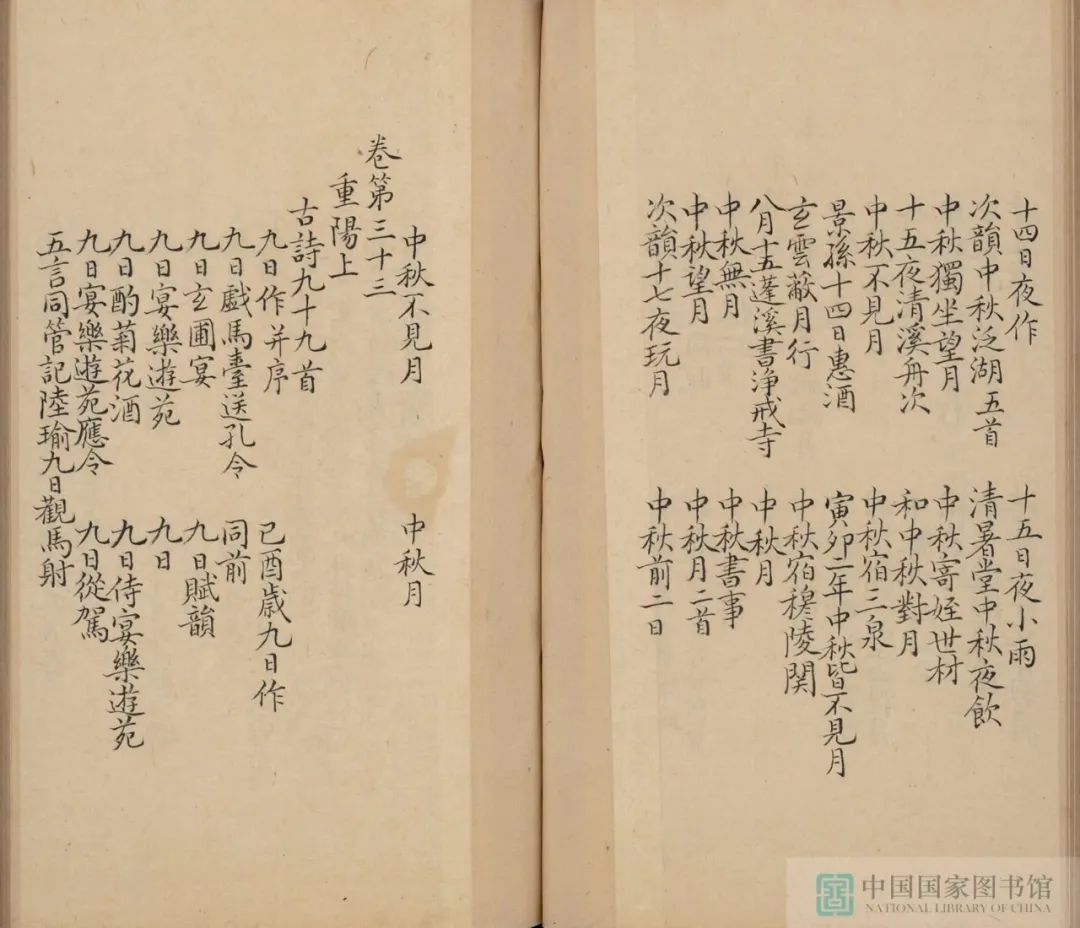 十四日夜作 十五日夜小雨
次韻中秋泛湖五首 清暑堂中秋夜飲
中秋獨坐望月 中秋寄姪世材
十五夜清溪舟次 和中秋對月
中秋不見月 中秋宿三泉
景孫十四日惠酒 寅卯二年中秋皆不見月
玄雲蔽月行 中秋宿穆陵関
八月十五蓬溪書淨戒寺 中秋月
中秋無月 中秋書事
中秋望月 中秋月二首
次韻十七夜玩月 中秋前二日
中秋不見月 中秋月
卷第三十三
重陽上
古詩九十九首
九日作并序 己酉歲九日作
九日戲馬臺送孔令 同前
九日玄圃宴 九日賦韻
九日宴樂遊苑 九日
九日酌菊花酒 九日侍宴樂遊苑
九日宴樂遊苑應令 九日從駕
五言同管記陸瑜九日觀馬射
中国国家图书馆
NATIONAL LIBRARY OF CHINA